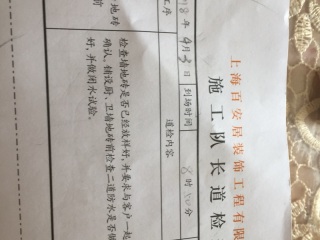 上海百安居装饰工程有限
施工队长道检
8年9月3日 到场时间 8时30分
工序 道检内容
地砖
前
检查墙地砖是否已经放样好,并要求与客户一起
确认。铺设厨、卫墙地砖前检查二道防水是否做
好,并做闭水试验。